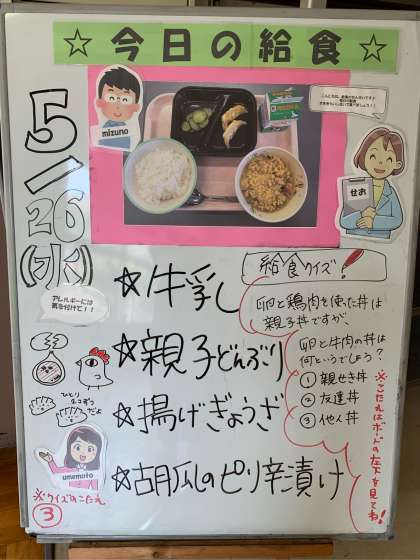 ☆今日の給食☆
5/26(水)
mizuno
せお
アレルギーには
気を付けて!!
☆牛乳
☆親子どんぶり
☆揚げぎょうざ
☆胡瓜のピリ辛漬け
給食クイズ!
卵と鶏肉を使った丼は
親子丼ですが、
卵と牛肉の丼は
何というでしょう?
① 親せき丼
② 友達丼
③ 他人丼
※こたえはボードの左下を見てね!
ひとり
2コずつ
だよ
umemoto
※クイズのこたえ
③